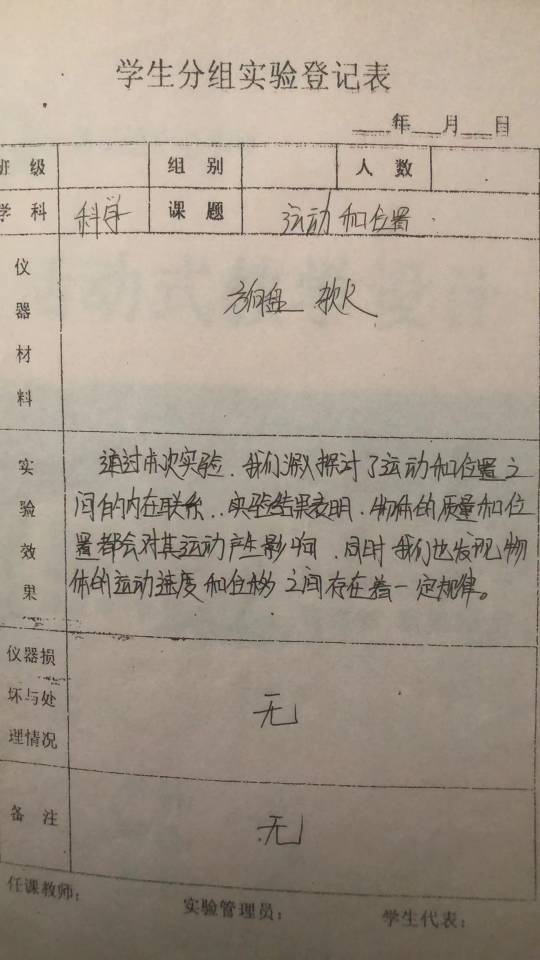 学生分组实验登记表
年 月 日
班 级 组 别 人 数
学 科 科学 课 题 运动和位置
仪器材料 方向盘 软尺
实验效果
通过本次实验,我们深入探讨了运动和位置之
间有的内在联系.实验结果表明,物体的质量和位
置都会对其运动产生影响,同时我们也发现物
体的运动速度和位移之间存在着一定规律。
仪器损
坏与处
理情况 无
备 注 无
任课教师: 实验管理员: 学生代表: